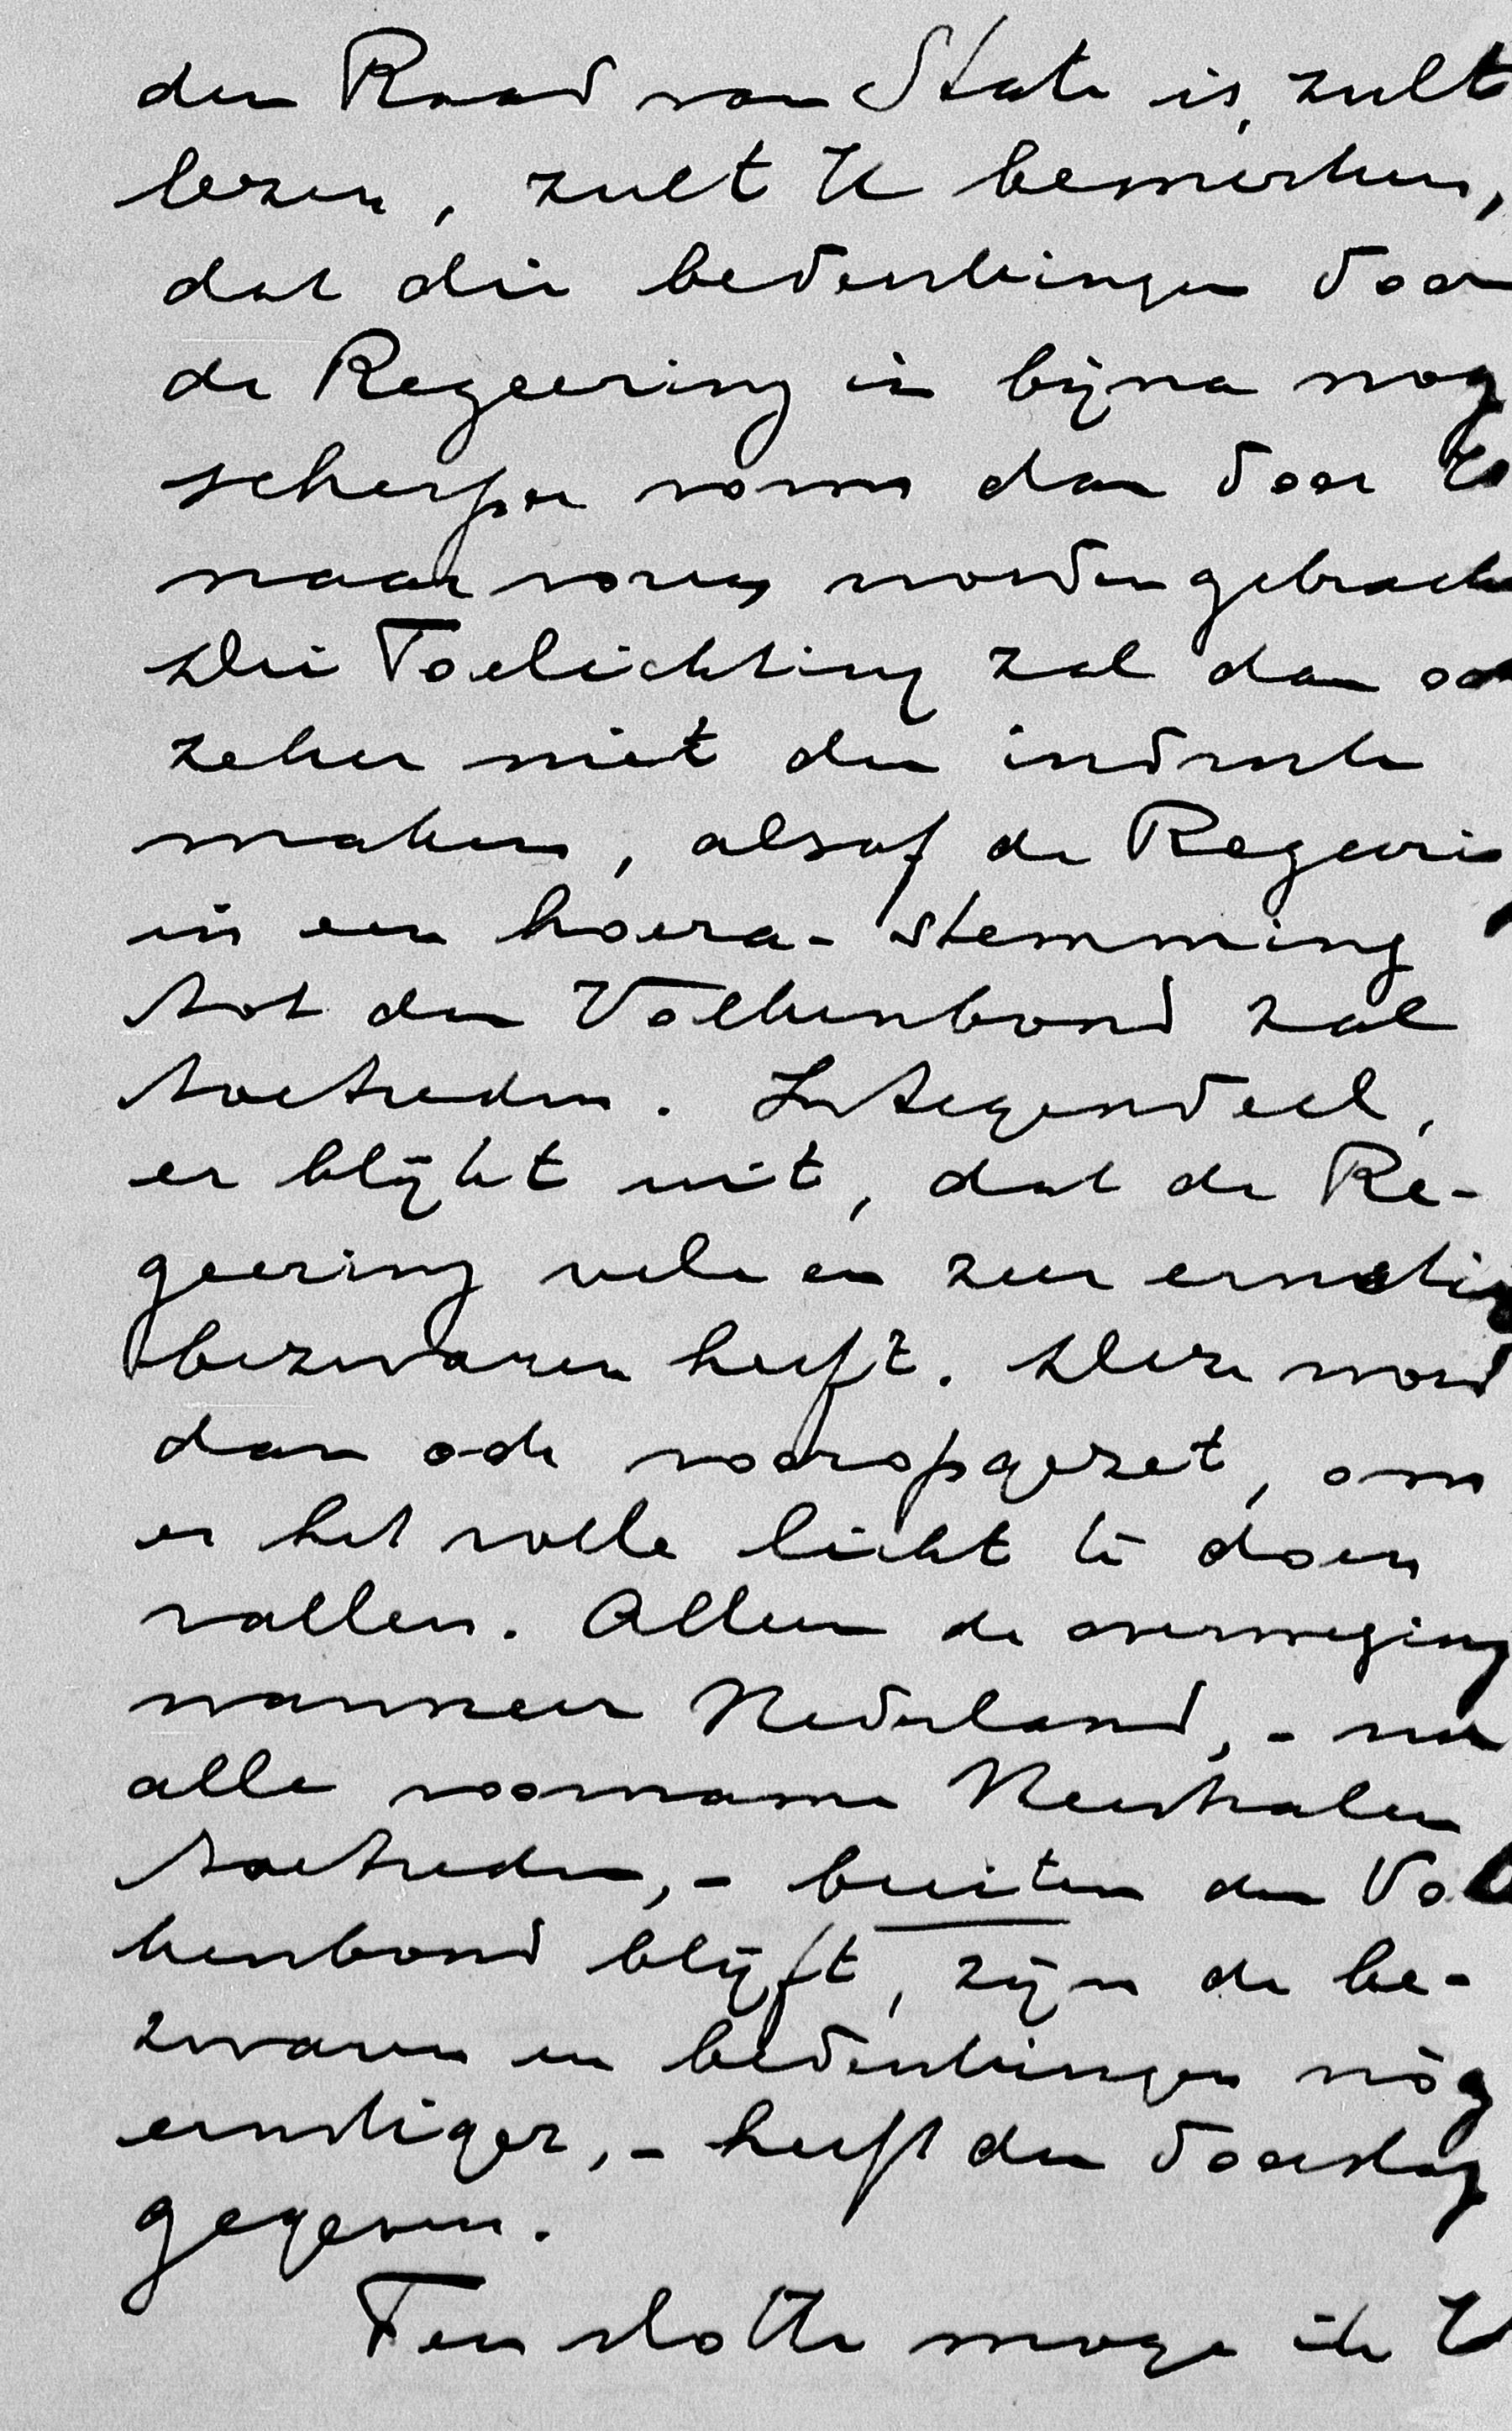 den Raad van State is, zult
lezen, zult U bemerken,
dat die bedenkingen door
de Regeering in bijna nog
scherper vorm dan door U
naar voren worden gebrach
Die Toelichting zal dan oo
zeker niet den indruk
maken, alsof de Regeeri
in een hoera-stemming
tot den Volkenbond zal
toetreden. Integendeel,
er blijkt uit, dat de Re-
geering vele en zeer ernstig
bezwaren heeft. Deze word
dan ook vooropgezet, om
er het volle licht te doen
vallen. Alleen de overweging
wanneer Nederland, - nu
alle voorname Neutralen
toetreden, - buiten den Vol
kenbond blijft, zijn de be-
zwaren en bedenkingen nòg
ernstiger, - heeft den doorslag
gegeven.
Ten slotte moge ik U